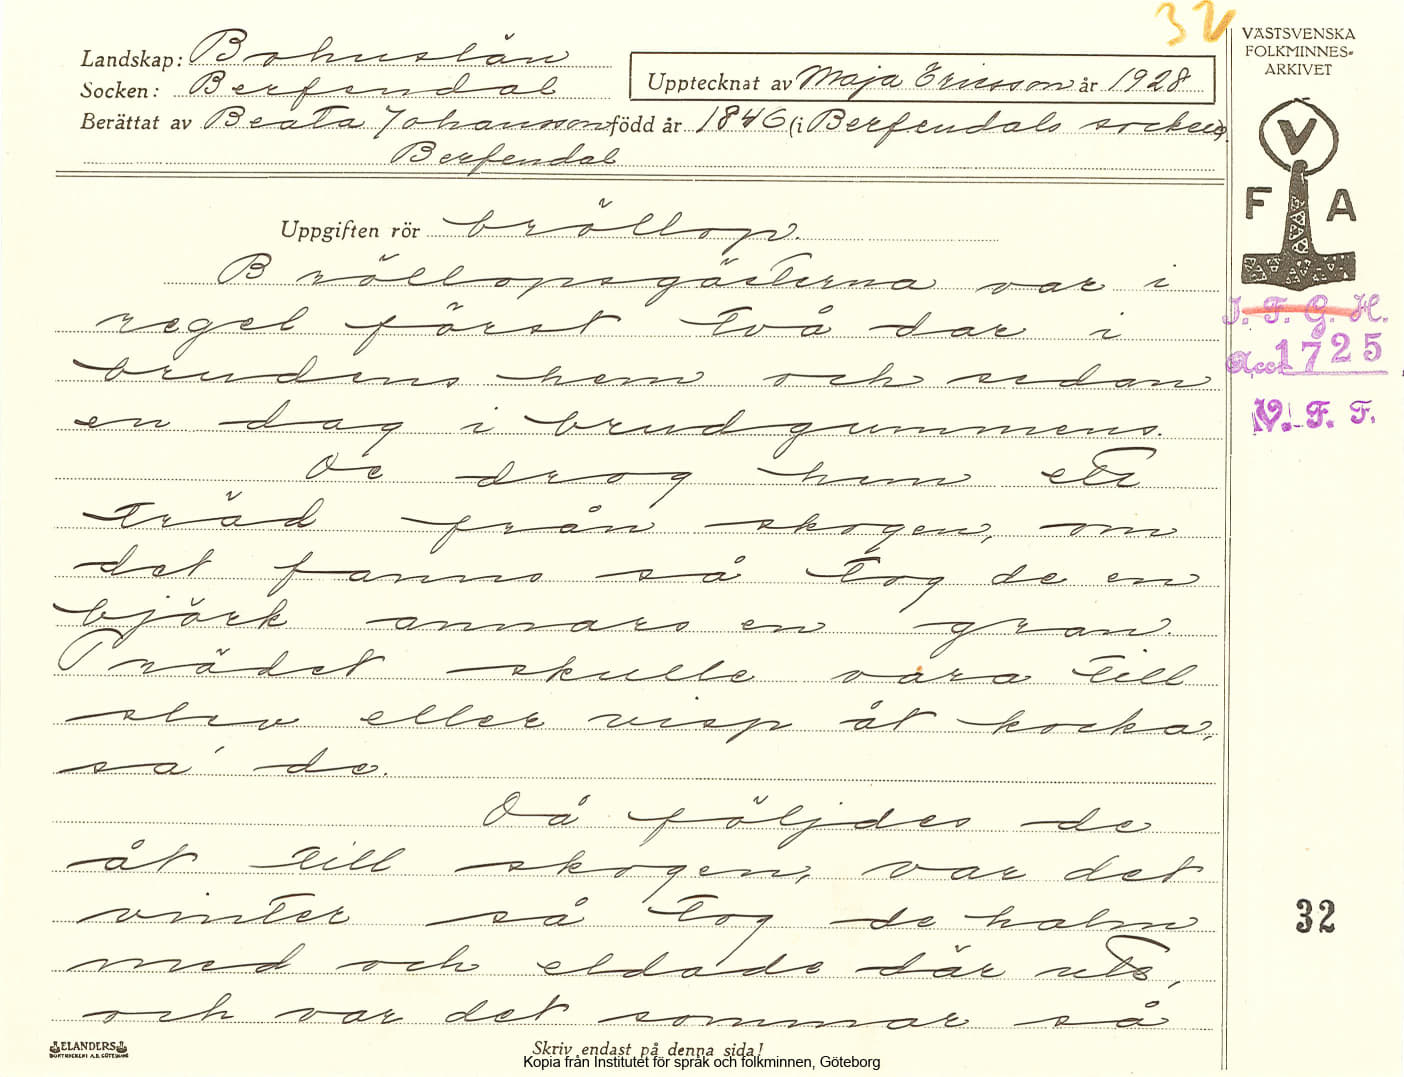 32
VÄSTSVENSKA
FOLKMINNES-
ARKIVET
Landskap: Bohuslän
Socken: Berfendal
Upptecknat av Maja Ericsson år 1928
Berättat av Beata Johansson född år 1846 (i Berfendals socken).
Berfendal
V
F A
Uppgiften rör bröllop.
Bröllopsgästerna var i
regel först två dar i
brudens hem och sedan
en dag i brudgummens.
De drog hem ett
träd från skogen, om
det fanns så tog de en
björk annars en gran.
Trädet skulle vara till
slev eller visp åt kocka,
sa' de.
Då följdes de
åt till skogen, var det
vinter så tog de halm
med och eldade där ute,
och var det sommar så
I. F. G. H.
Acc 1725
V. F. F.
32
ELANDERS
BOKTRYCKERI A.B. GÖTEBORG
Skriv endast på denna sida!
Kopia från Institutet för språk och folkminnen, Göteborg